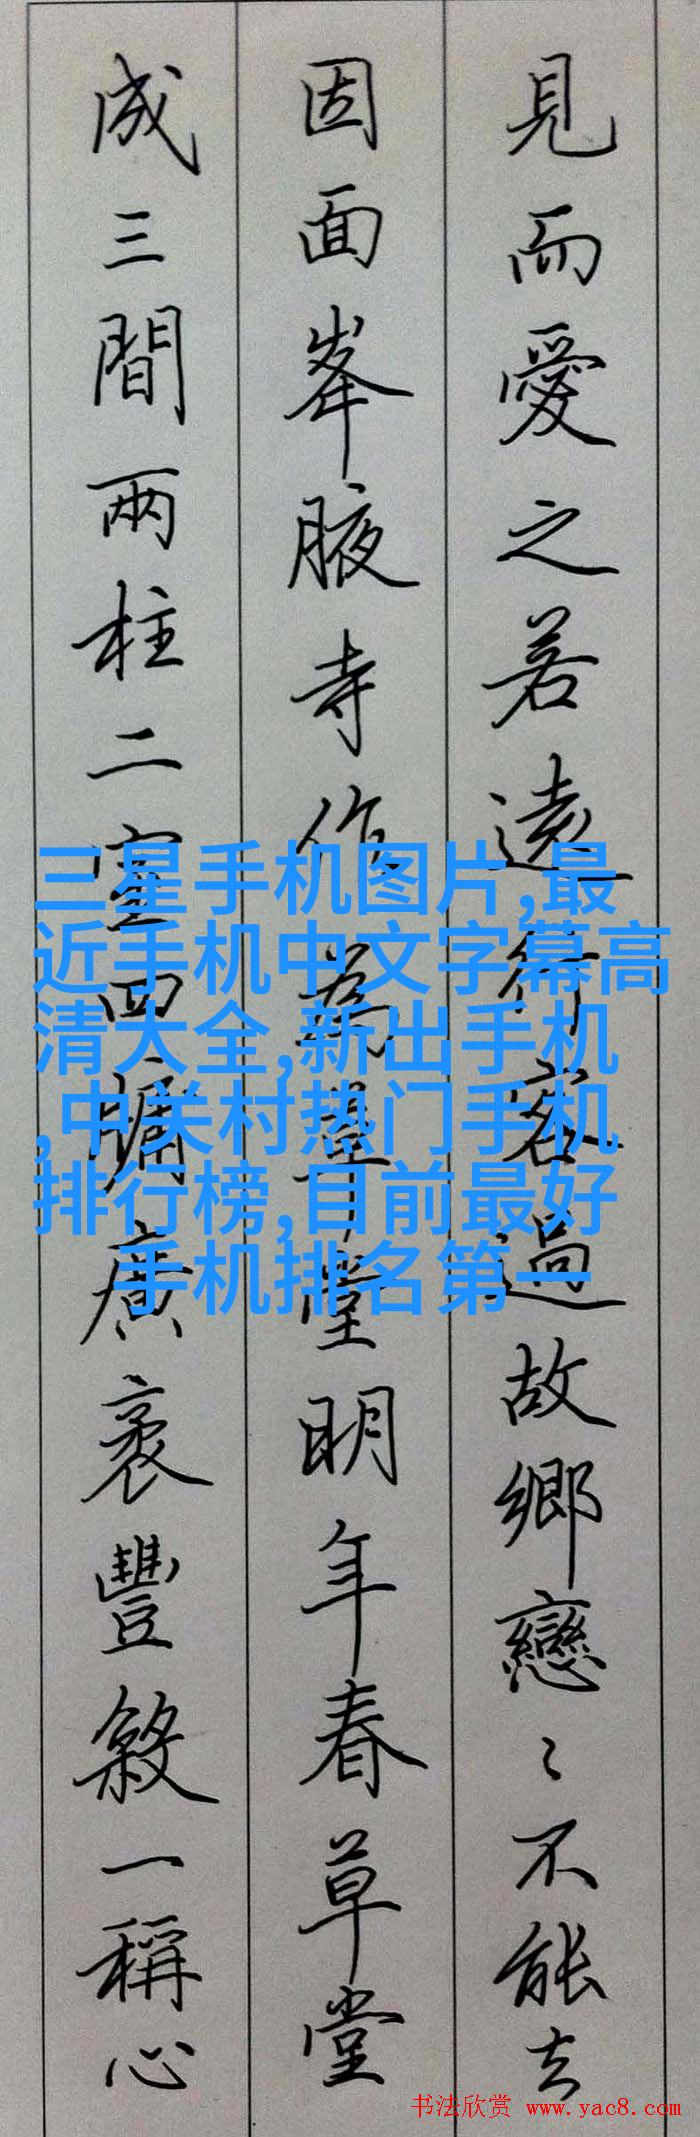 見而愛之若遠行客過故鄉戀〻不能去
因面峯腋寺作為草堂明年春草堂
成三間兩柱二室四牖廣袤豐殺一稱心
三星手机图片,最
近手机中文字幕高
清大全,新出手机
,中关村热门手机
排行榜,目前最好
手机排名第一
书法欣赏 www.yac8.com